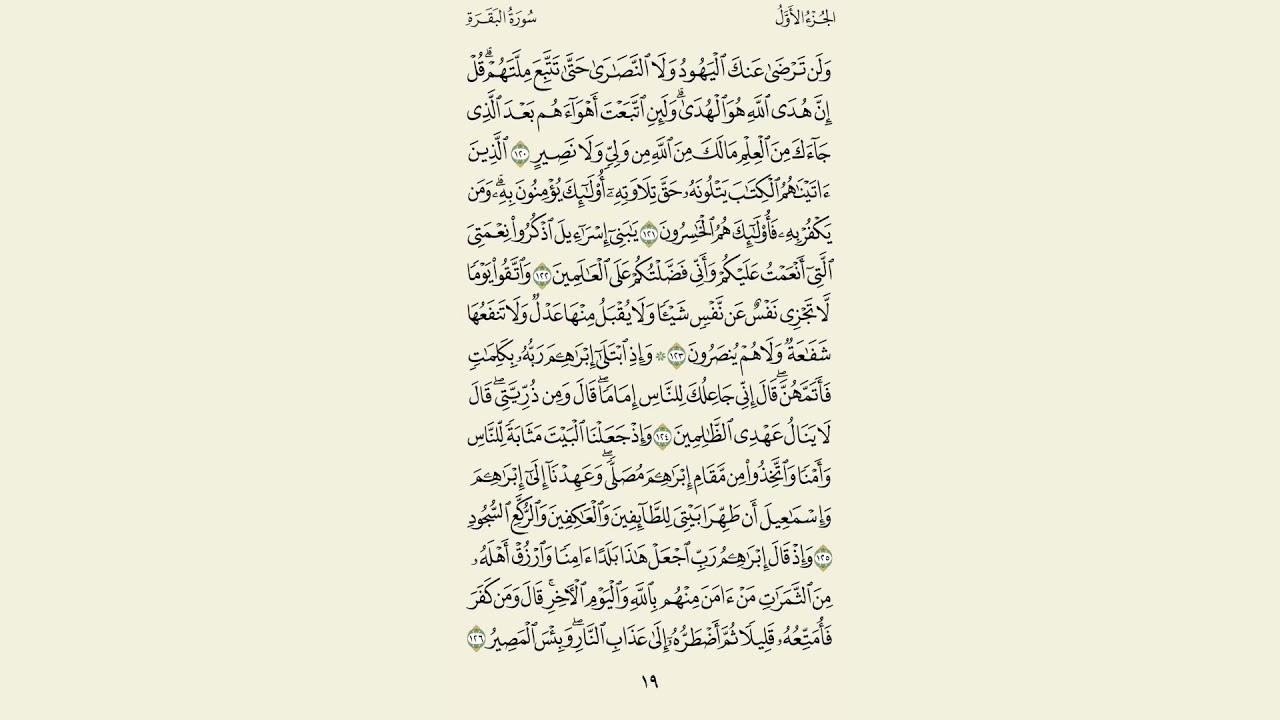 الجُزْءُ الأَوَّلُ سُورَةُ البَقَرَةِ
وَلَن تَرْضَىٰ عَنكَ ٱلْيَهُودُ وَلَا ٱلنَّصَـٰرَىٰ حَتَّىٰ تَتَّبِعَ مِلَّتَهُمْ ۗ قُلْ
إِنَّ هُدَى ٱللَّهِ هُوَ ٱلْهُدَىٰ ۗ وَلَئِنِ ٱتَّبَعْتَ أَهْوَآءَهُم بَعْدَ ٱلَّذِى
جَآءَكَ مِنَ ٱلْعِلْمِ مَا لَكَ مِنَ ٱللَّهِ مِن وَلِىٍّ وَلَا نَصِيرٍ ١٢٠ ٱلَّذِينَ
ءَاتَيْنَـٰهُمُ ٱلْكِتَـٰبَ يَتْلُونَهُۥ حَقَّ تِلَاوَتِهِۦٓ أُو۟لَـٰٓئِكَ يُؤْمِنُونَ بِهِۦ ۗ وَمَن
يَكْفُرْ بِهِۦ فَأُو۟لَـٰٓئِكَ هُمُ ٱلْخَـٰسِرُونَ ١٢١ يَـٰبَنِىٓ إِسْرَٰٓءِيلَ ٱذْكُرُوا۟ نِعْمَتِىَ
ٱلَّتِىٓ أَنْعَمْتُ عَلَيْكُمْ وَأَنِّى فَضَّلْتُكُمْ عَلَى ٱلْعَـٰلَمِينَ ١٢٢ وَٱتَّقُوا۟ يَوْمًا
لَّا تَجْزِى نَفْسٌ عَن نَّفْسٍ شَيْـًٔا وَلَا يُقْبَلُ مِنْهَا عَدْلٌ وَلَا تَنفَعُهَا
شَفَـٰعَةٌ وَلَا هُمْ يُنصَرُونَ ١٢٣ ۞ وَإِذِ ٱبْتَلَىٰٓ إِبْرَٰهِـۧمَ رَبُّهُۥ بِكَلِمَـٰتٍ
فَأَتَمَّهُنَّ ۖ قَالَ إِنِّى جَاعِلُكَ لِلنَّاسِ إِمَامًا ۖ قَالَ وَمِن ذُرِّيَّتِى ۖ قَالَ
لَا يَنَالُ عَهْدِى ٱلظَّـٰلِمِينَ ١٢٤ وَإِذْ جَعَلْنَا ٱلْبَيْتَ مَثَابَةً لِّلنَّاسِ
وَأَمْنًا وَٱتَّخِذُوا۟ مِن مَّقَامِ إِبْرَٰهِـۧمَ مُصَلًّى ۖ وَعَهِدْنَآ إِلَىٰٓ إِبْرَٰهِـۧمَ
وَإِسْمَـٰعِيلَ أَن طَهِّرَا بَيْتِىَ لِلطَّآئِفِينَ وَٱلْعَـٰكِفِينَ وَٱلرُّكَّعِ ٱلسُّجُودِ
١٢٥ وَإِذْ قَالَ إِبْرَٰهِـۧمُ رَبِّ ٱجْعَلْ هَـٰذَا بَلَدًا ءَامِنًا وَٱرْزُقْ أَهْلَهُۥ
مِنَ ٱلثَّمَرَٰتِ مَنْ ءَامَنَ مِنْهُم بِٱللَّهِ وَٱلْيَوْمِ ٱلْـَٔاخِرِ ۖ قَالَ وَمَن كَفَرَ
فَأُمَتِّعُهُۥ قَلِيلًا ثُمَّ أَضْطَرُّهُۥٓ إِلَىٰ عَذَابِ ٱلنَّارِ ۖ وَبِئْسَ ٱلْمَصِيرُ ١٢٦
١٩